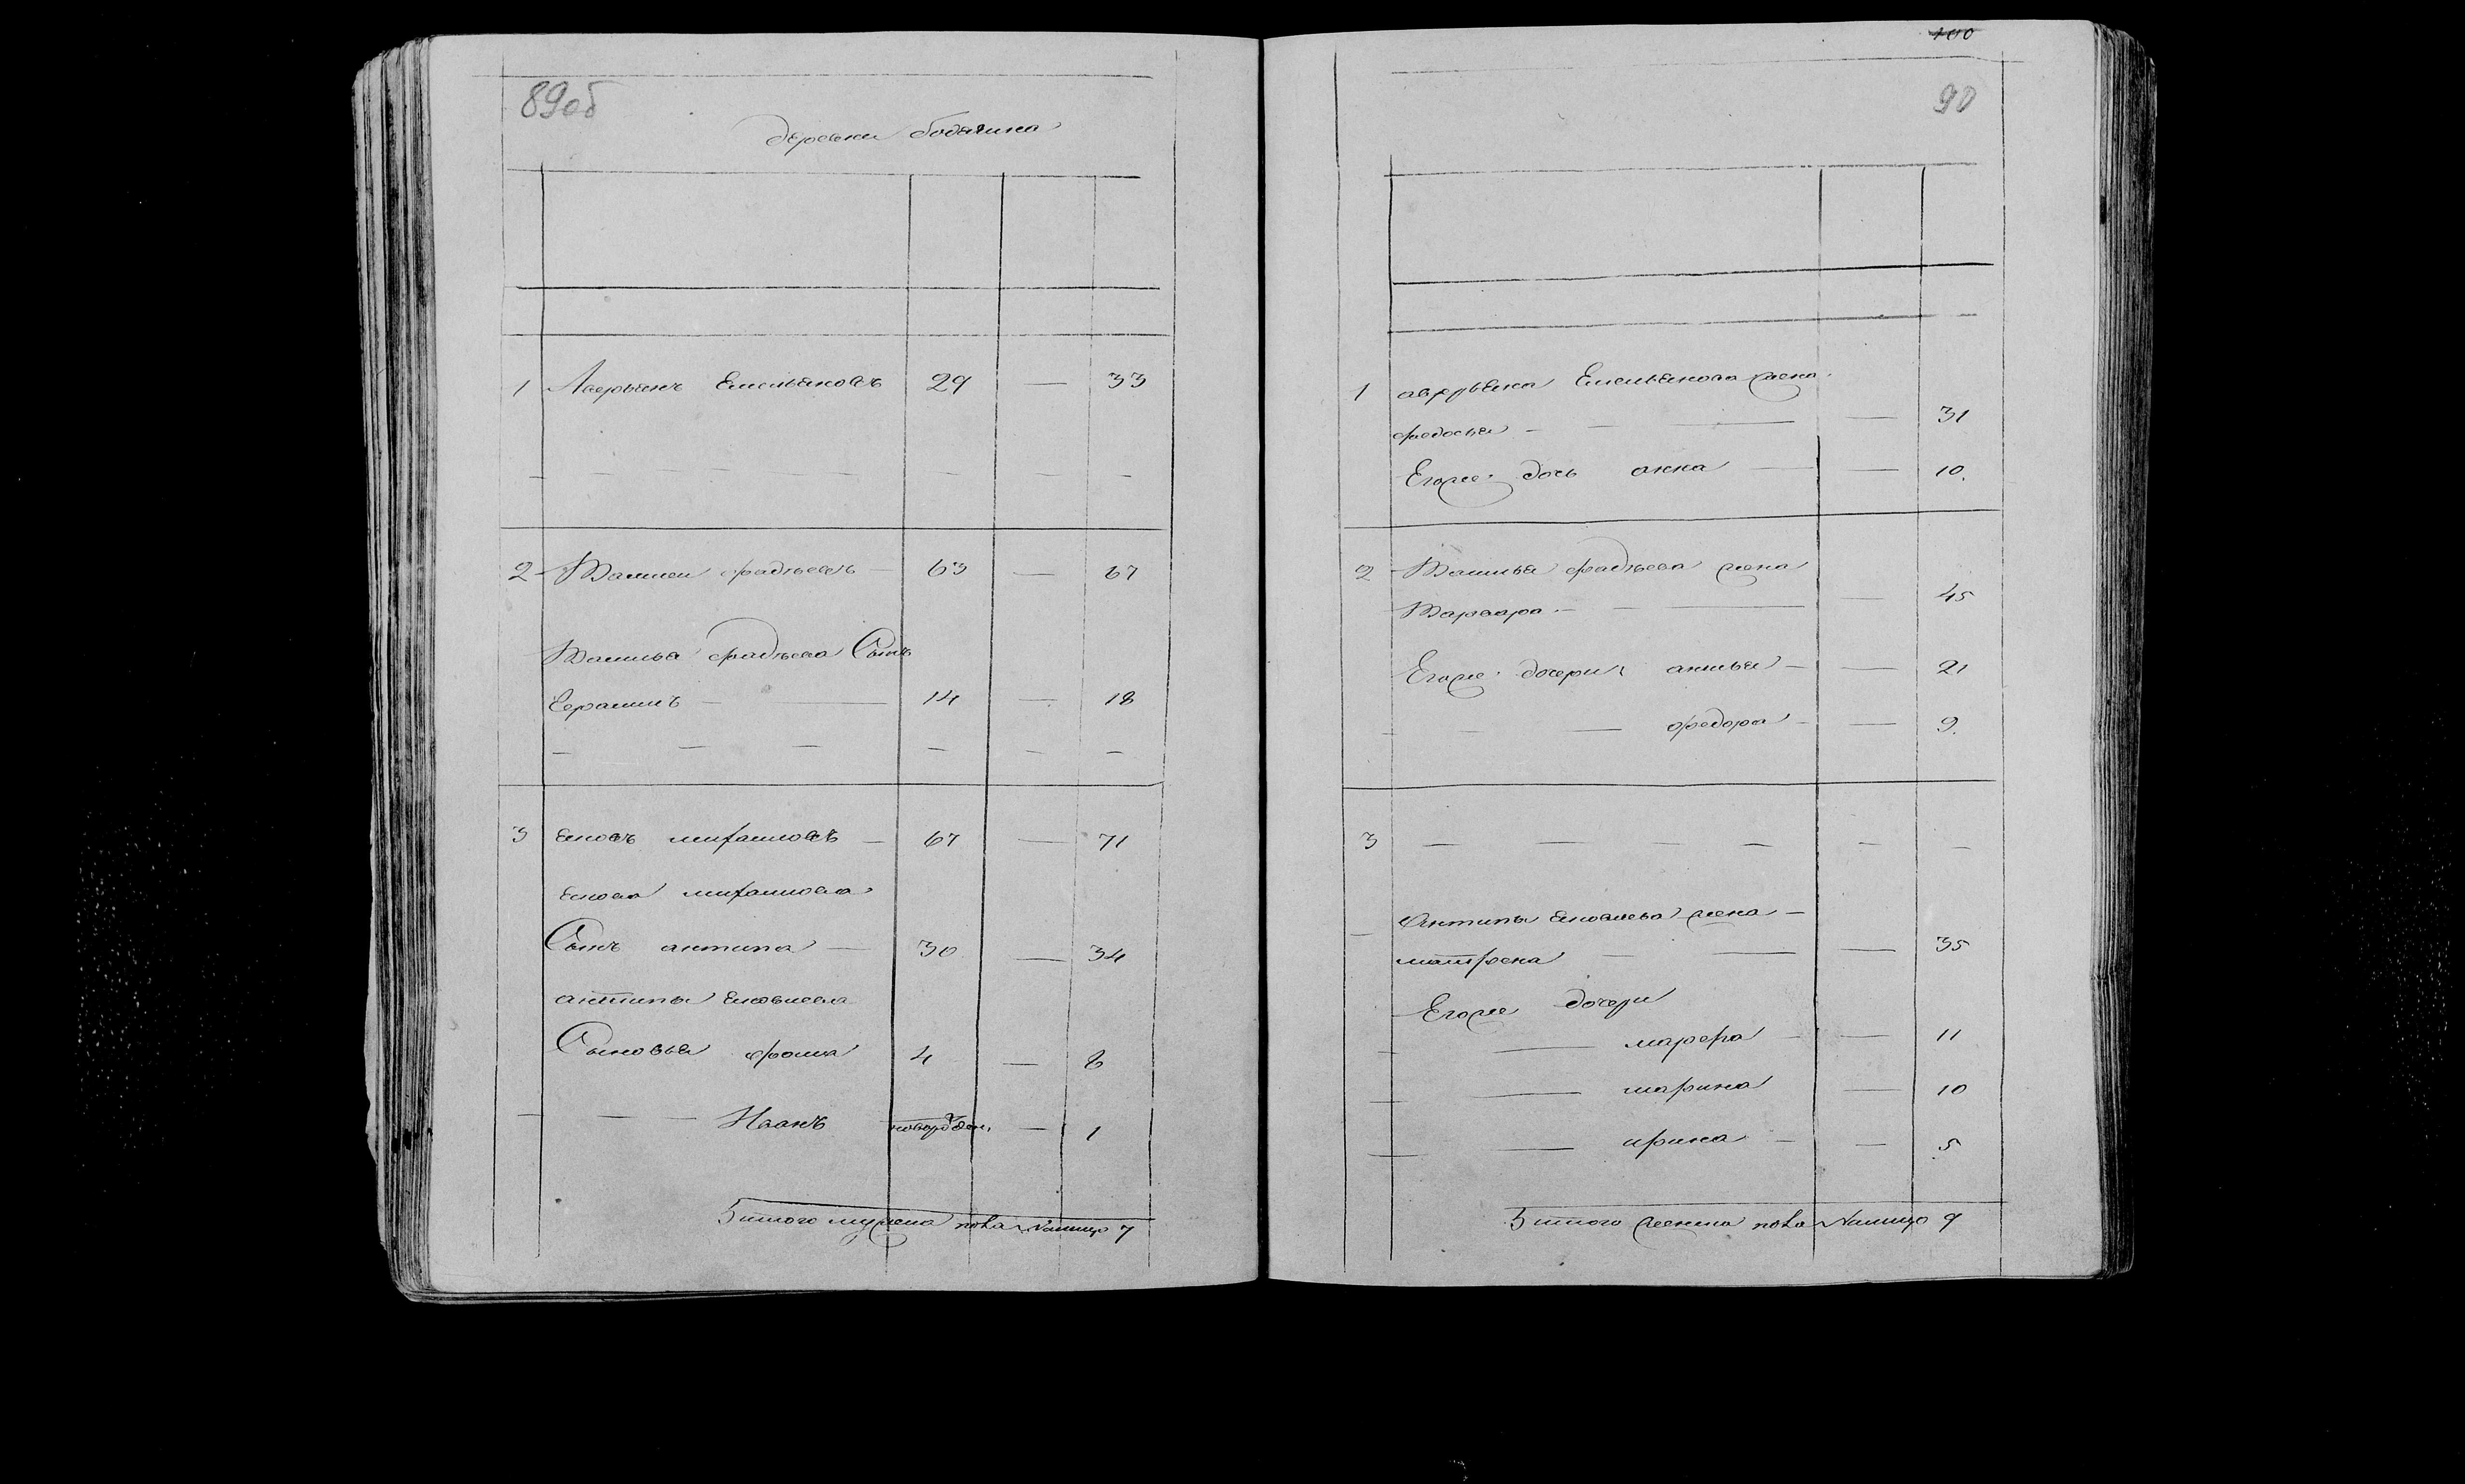 89об
деревни бодагина
1 Аверьянъ Емельяновъ 29 — 33
2 Василей фадѣевъ — 63 — 67
Василья фадѣева Сынъ
Герасимъ — — 14 — 18
3 Еиовъ михаиловъ — 67 — 71
Еиова михаилова
Сынъ антипа — 30 — 34
антипы Еиовлева
Сыновья фома 4 — 8
— — Иванъ новорожден. — 1
5 итого мужеска пола Налицо 7
100
90
1 аверьяна Емельянова жена
федосья — — — — 31
Егоже дочь анна — — 10.
2 Василья фадѣева жена
Варвара — — — — 45
Егоже дочери: анисья — — 21
— — федора — — 9.
3 — — — — — —
Антипы Еиовлева жена —
матрена — — — 35
Егоже дочери
— марфа — — 11
— марина — 10
— ирина — — 5
5 итого женска пола Налицо 9